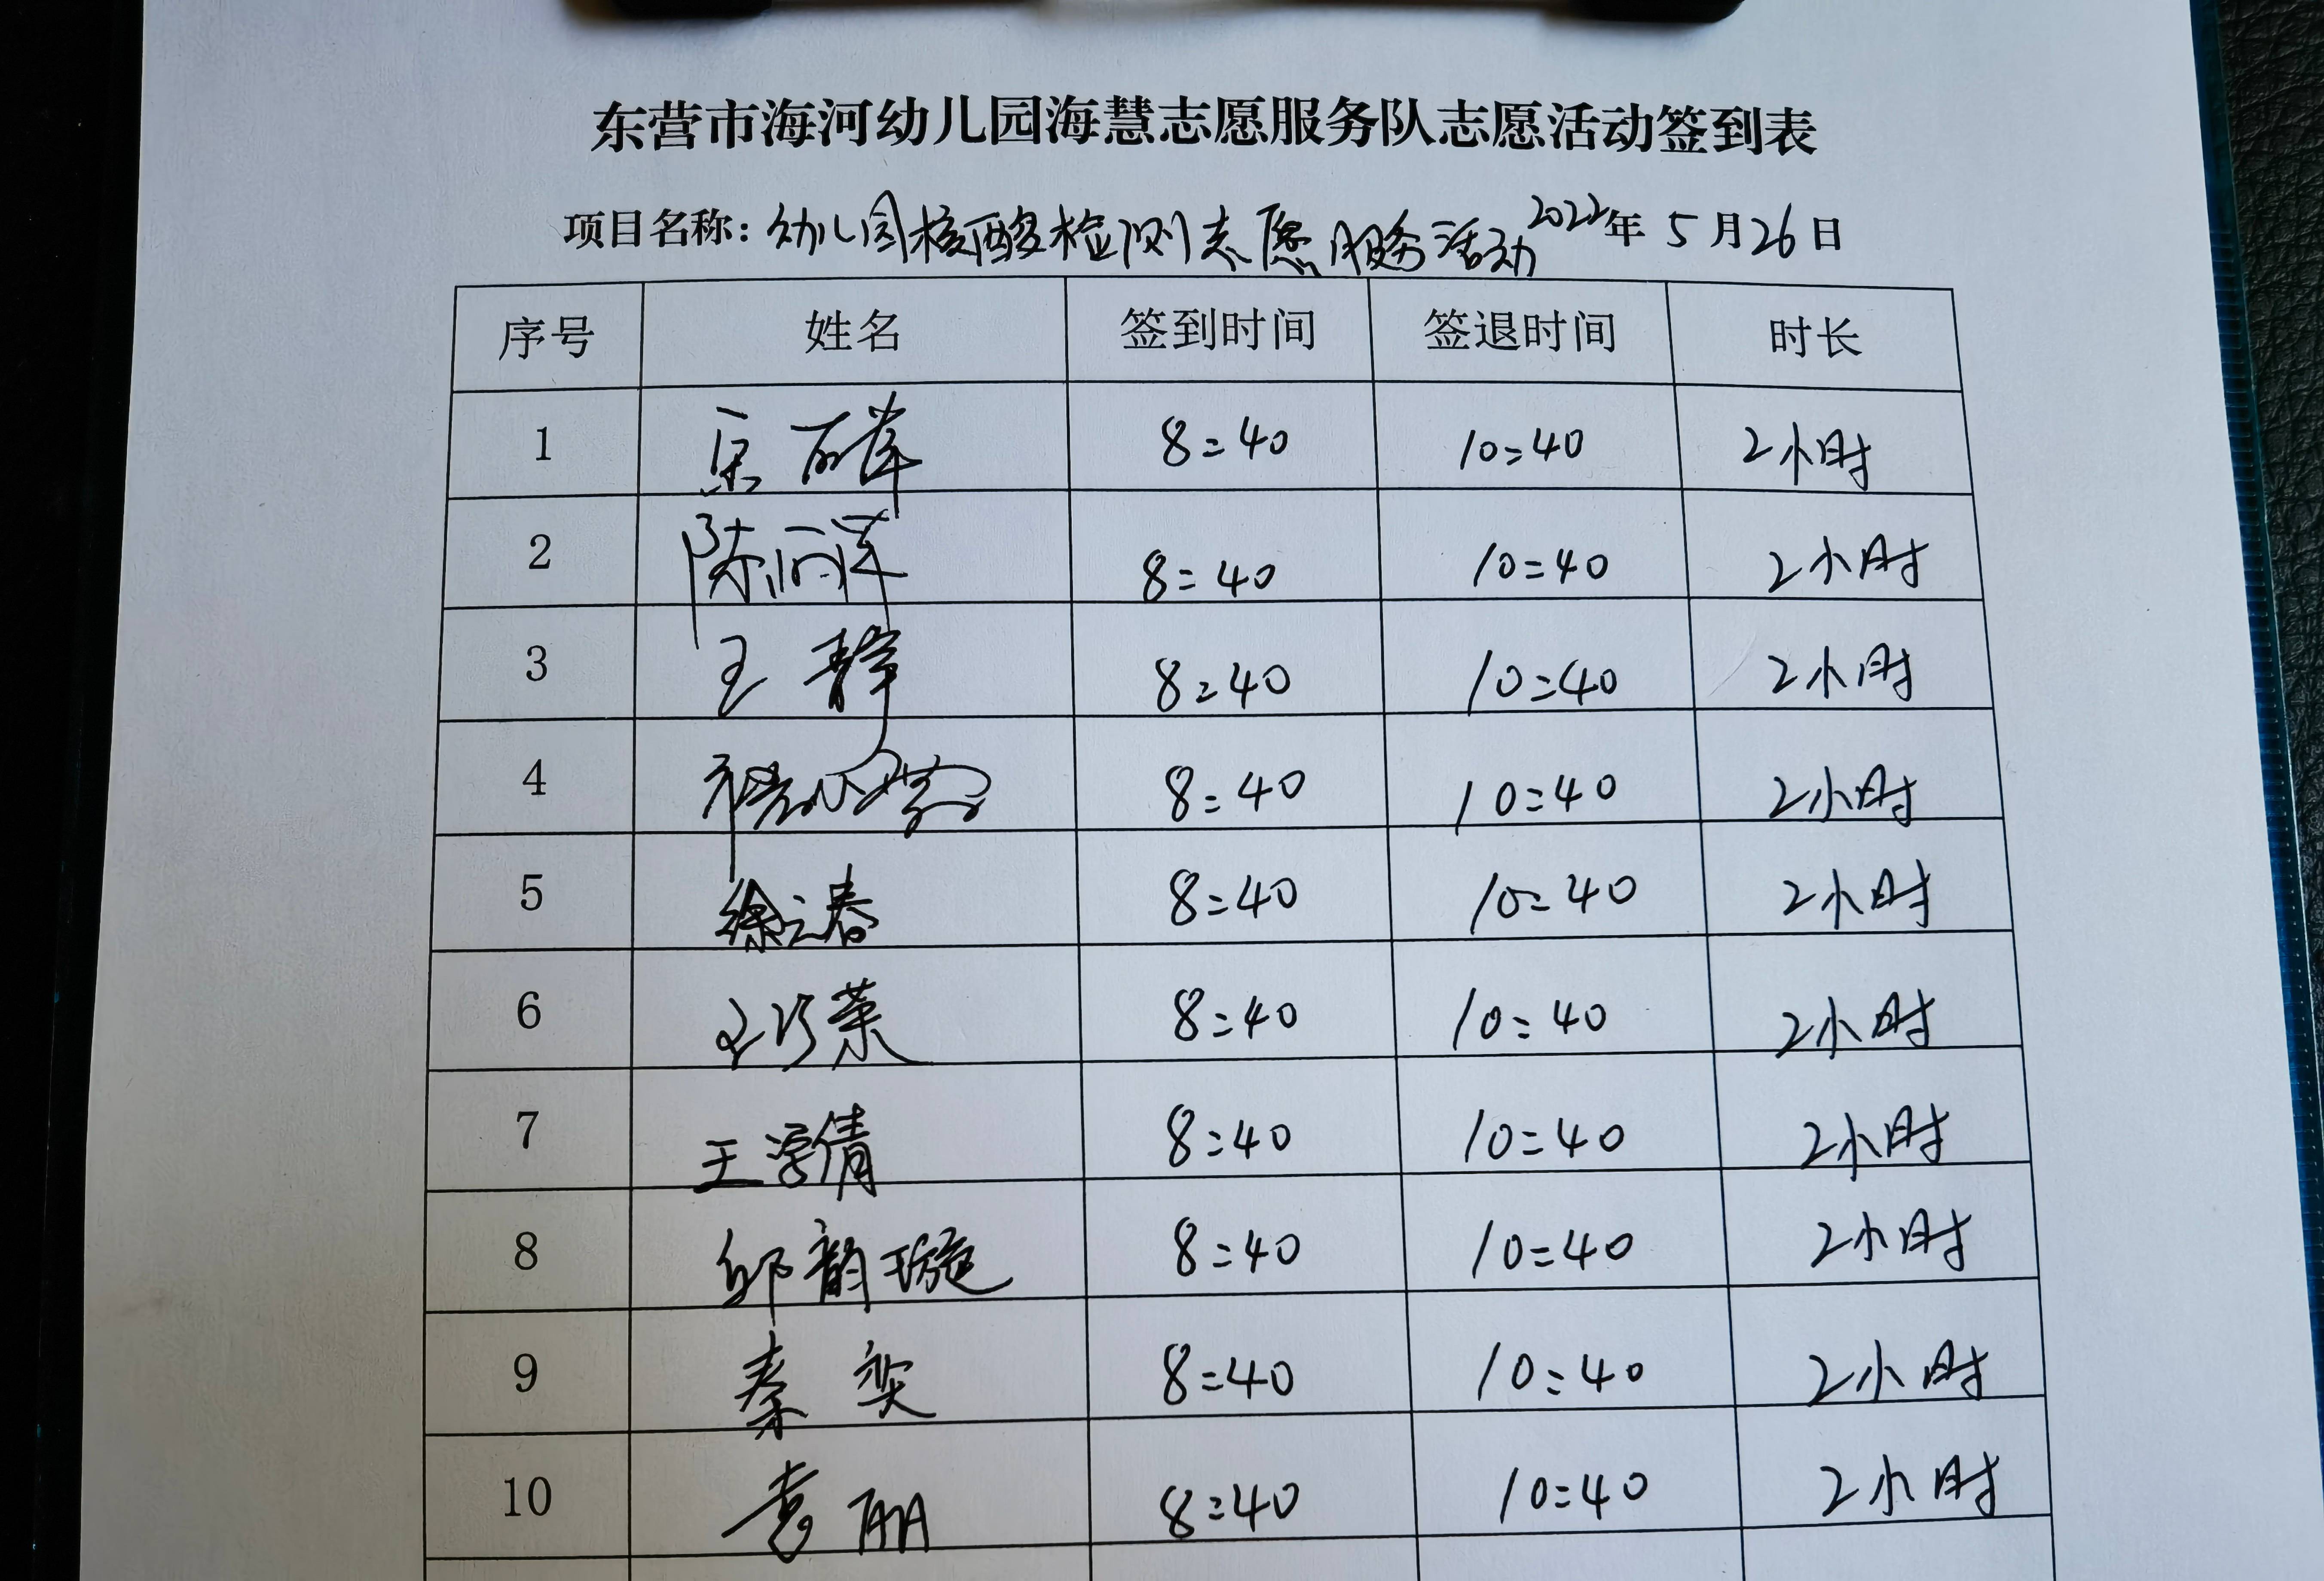 东营市海河幼儿园海慧志愿服务队志愿活动签到表
项目名称：幼儿园核酸检测志愿服务活动 2022年 5月26日
序号 姓名 签到时间 签退时间 时长
1 8:40 10:40 2小时
2 陈润泽 8:40 10:40 2小时
3 王静 8:40 10:40 2小时
4 8:40 10:40 2小时
5 徐云春 8:40 10:40 2小时
6 8:40 10:40 2小时
7 王学倩 8:40 10:40 2小时
8 邱韵璇 8:40 10:40 2小时
9 秦奕 8:40 10:40 2小时
10 袁丽 8:40 10:40 2小时